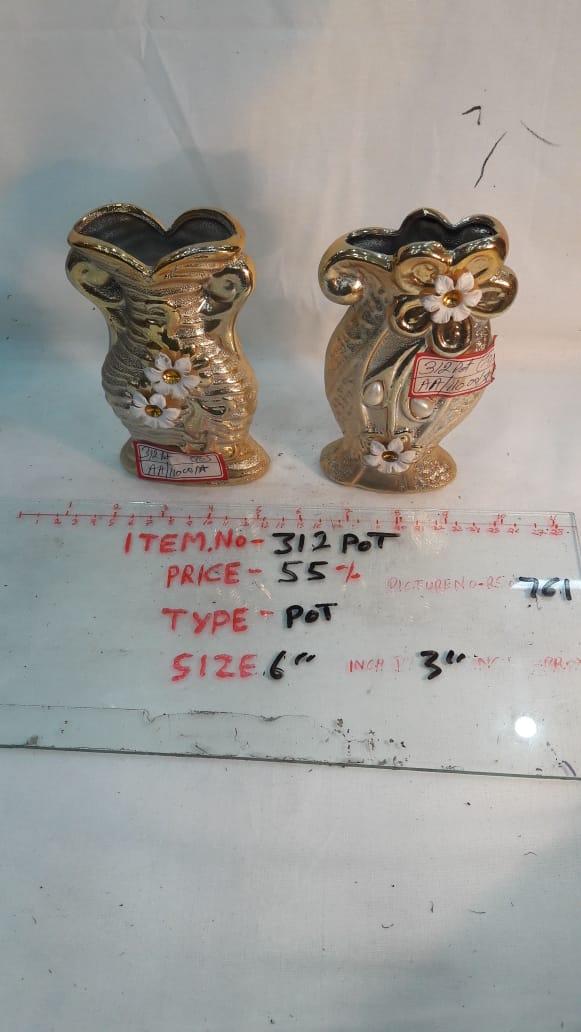 312 Pot
AA/110 00/A
312 Pot
AA/110 00
ITEM.No- 312 POT
PRICE- 55%
PICTURE NO-RE 761
TYPE- POT
SIZE 6" INCH 3" INC